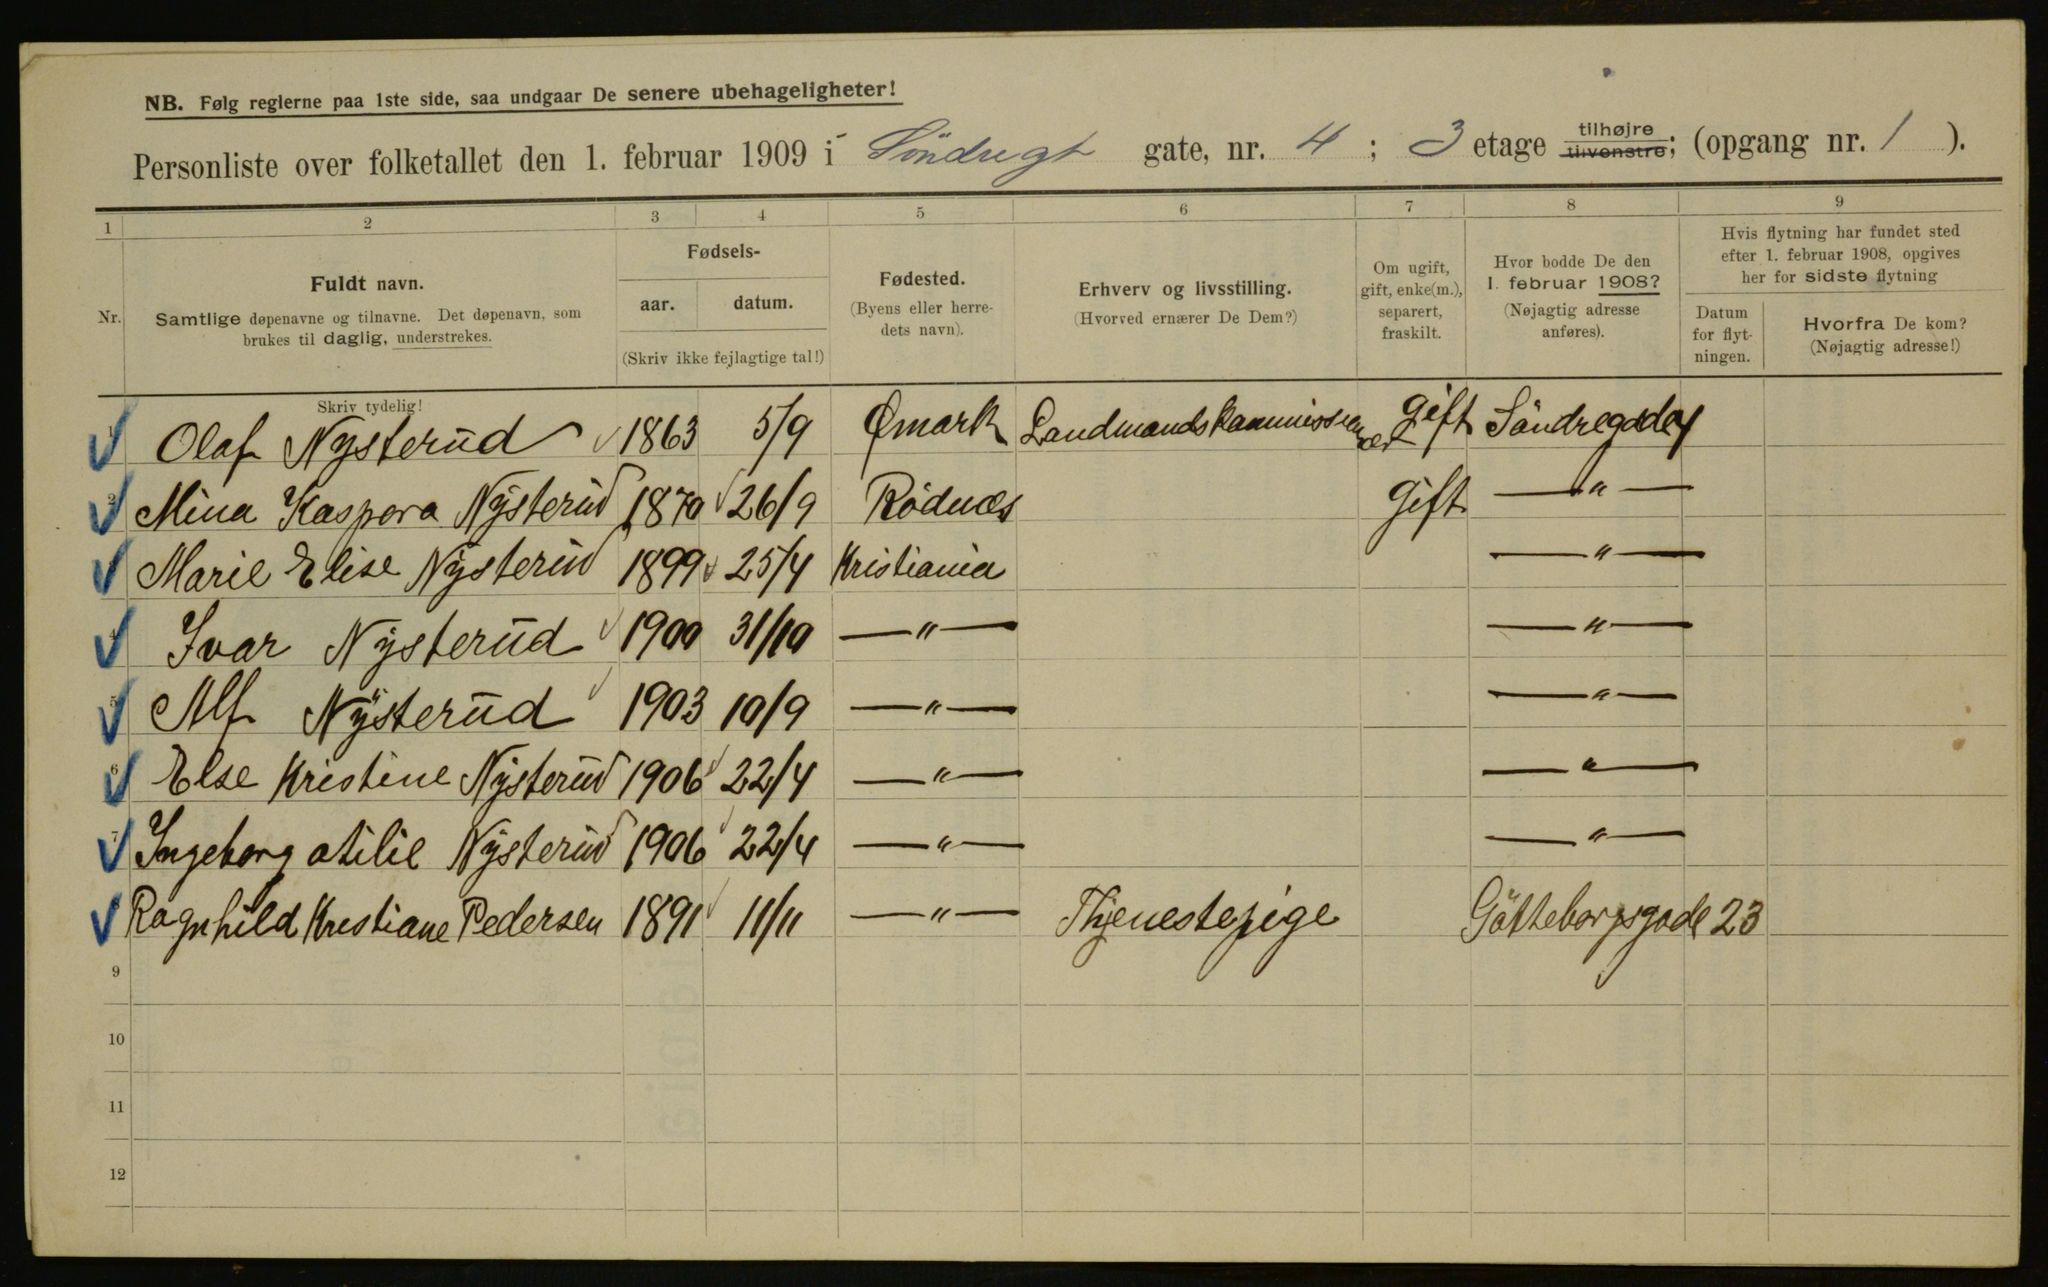 NB. Følg reglerne paa 1ste side, saa undgaar De senere ubehageligheter!
Personliste over folketallet den 1. februar 1909 i Söndregt gate, nr. 4 ; 3 etage tilhøjre tilvenstre; (opgang nr. 1 ).
1 2 3 4 5 6 7 8 9
Nr.
Fuldt navn.
Samtlige døpenavne og tilnavne. Det døpenavn, som
brukes til daglig, understrekes.
Skriv tydelig!
Fødsels-
aar. datum.
(Skriv ikke fejlagtige tal!)
Fødested.
(Byens eller herre-
dets navn).
Erhverv og livsstilling.
(Hvorved ernærer De Dem?)
Om ugift,
gift, enke(m.),
separert,
fraskilt.
Hvor bodde De den
1. februar 1908?
(Nøjagtig adresse
anføres).
Hvis flytning har fundet sted
efter 1. februar 1908, opgives
her for sidste flytning
Datum
for flyt-
ningen.
Hvorfra De kom?
(Nøjagtig adresse!)
1 Olaf Nysterud 1863 5/9 Ømark Gift
2 Mina Kaspara Nysterud 1870 26/9 Rödnæs Gift —"—
3 Marie Elise Nysterud 1899 25/4 Kristiania —"—
4 Ivar Nysterud 1900 31/10 —"— —"—
5 Alf Nysterud 1903 10/9 —"— —"—
6 Else Kristine Nysterud 1906 22/4 —"— —"—
7 Ingeborg otilie Nysterud 1906 22/4 —"— —"—
8 Ragnhild Kristiane Pedersen 1891 11/11 —"— Thjenestepige Götteborgsgade 23
9
10
11
12